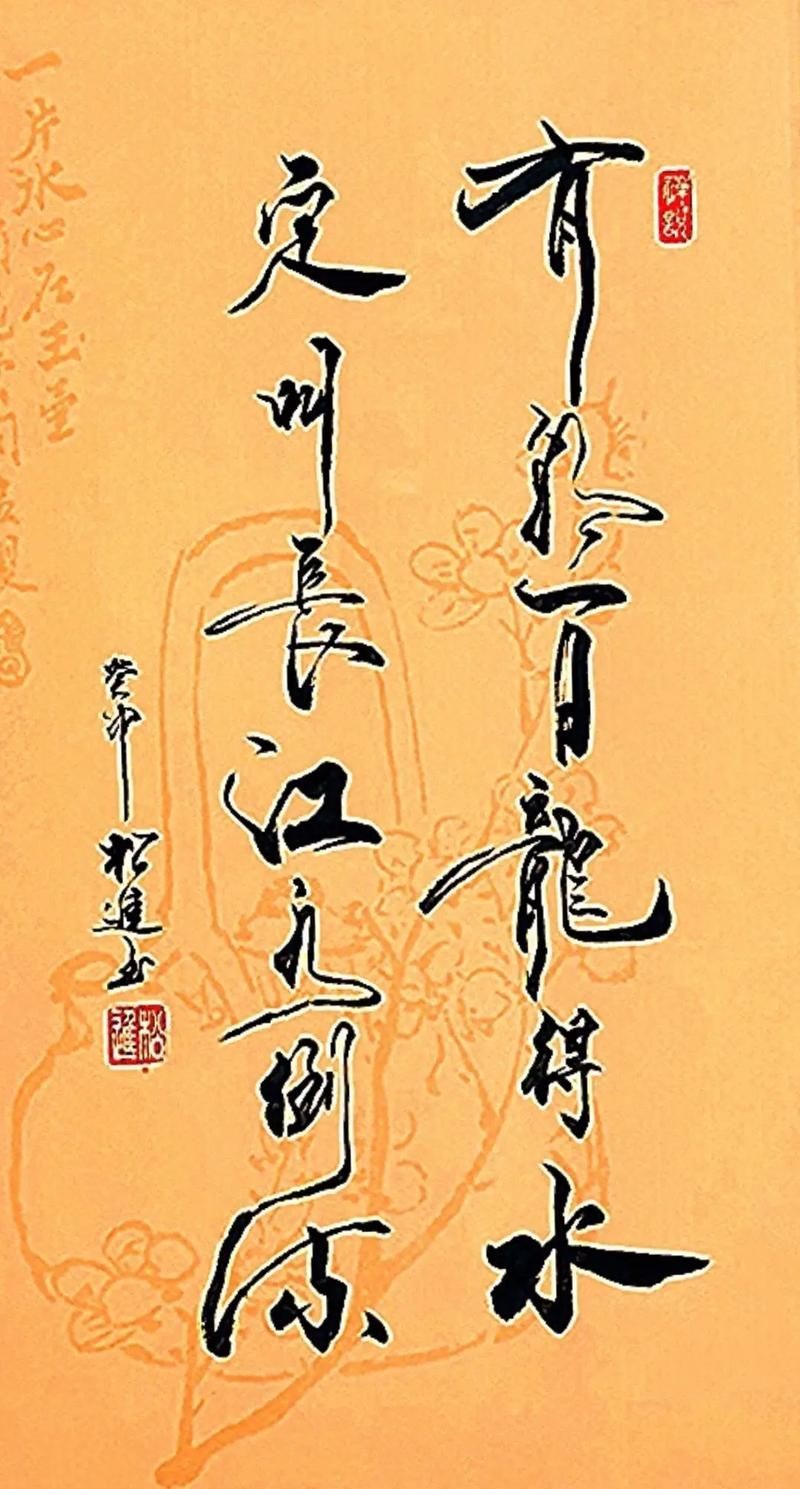 有朝一日龍得水
定叫長江倒流
癸卯 松進書
松進
一片冰心在玉壺